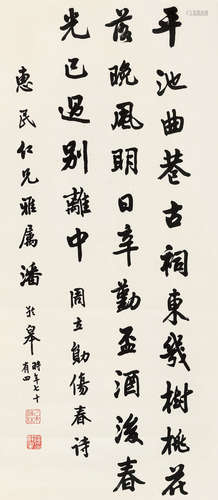 平池曲巷古祠東幾樹桃花
落晚風明日辛勤盃酒後春
光已過別離中 周立勛傷春詩
惠民仁兄雅屬 潘
齡皋 時年七十
有四